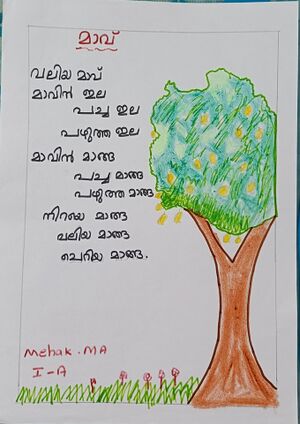 മാവ്
വലിയ മാവ്
മാവിൻ ഇല
പച്ച ഇല
പഴുത്ത ഇല
മാവിൻ മാങ്ങ
പച്ച മാങ്ങ
പഴുത്ത മാങ്ങ
നിറയെ മാങ്ങ
വലിയ മാങ്ങ
ചെറിയ മാങ്ങ.
Mehak.MA
I-A